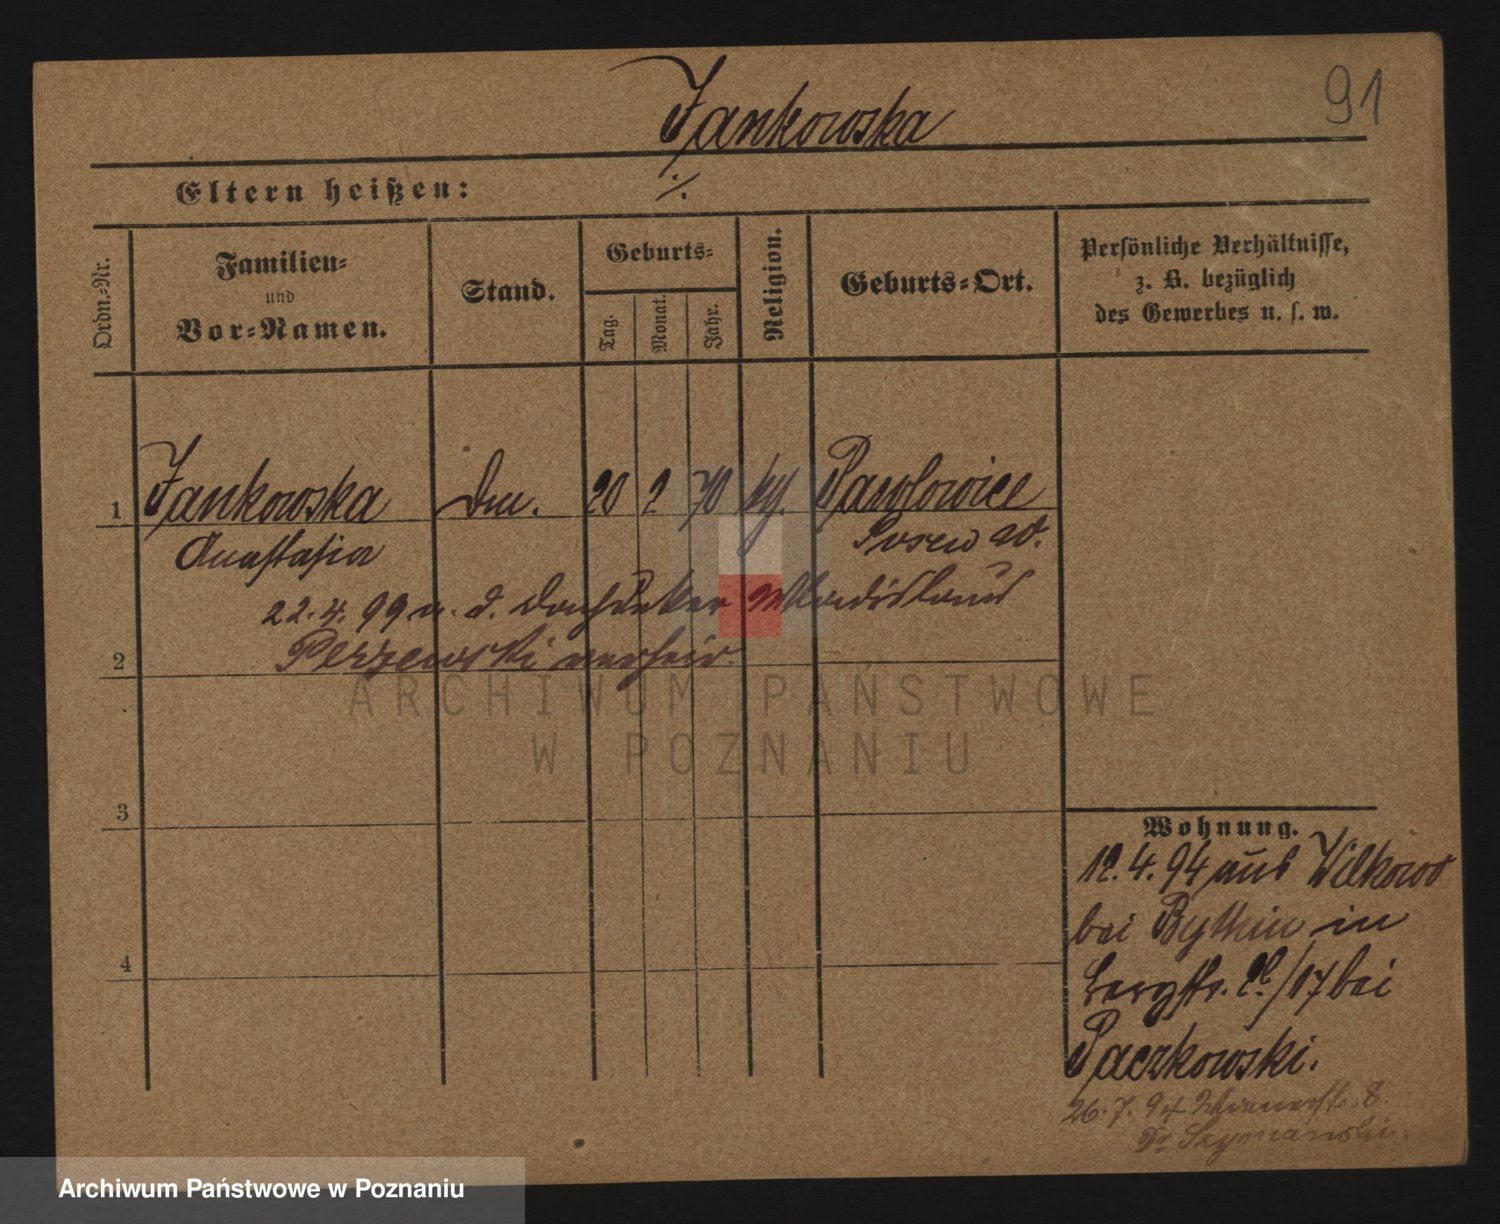 Jankowska
91
Eltern heißen: ./.
Ordn.-Nr.
Familien-
und
Vor-Namen.
Stand.
Geburts-
Tag.
Monat.
Jahr.
Religion.
Geburts-Ort.
Persönliche Verhältnisse,
z. B. bezüglich
des Gewerbes u. s. w.
1 Jankowska 20 2 70 Pawlowice
Anastasia Posen W.
22.4.99 a. d. Dachdecker Wladislaus
2 verheir.
ARCHIWUM PAŃSTWOWE
W POZNANIU
3
Wohnung.
12.4.94 aus Wilkowo
bei Bythin in
4
Bergstr. /17 bei
Paczkowski.
26.7.94 Wienerstr. 8
Dr Szymanski.
Archiwum Państwowe w Poznaniu